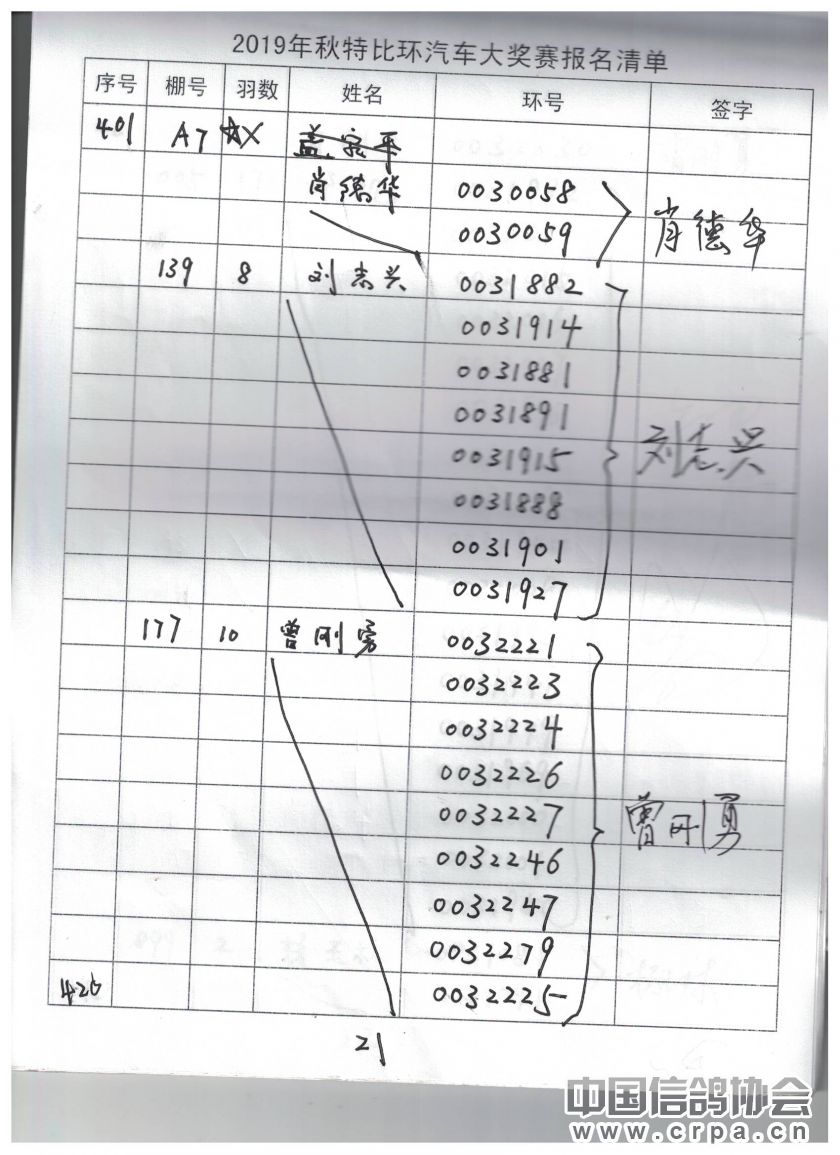 2019年秋特比环汽车大奖赛报名清单
序号 棚号 羽数 姓名 环号 签字
401 A7 盖宗平
肖德华 0030058
0030059 肖德华
139 8 刘志兴 0031882
0031914
0031881
0031891
0031915 刘志兴
0031888
0031901
0031927
177 10 曾刚勇 0032221
0032223
0032224
0032226
0032227 曾刚勇
0032246
0032247
0032279
420 0032225
21
中国信鸽协会
www.crpa.cn